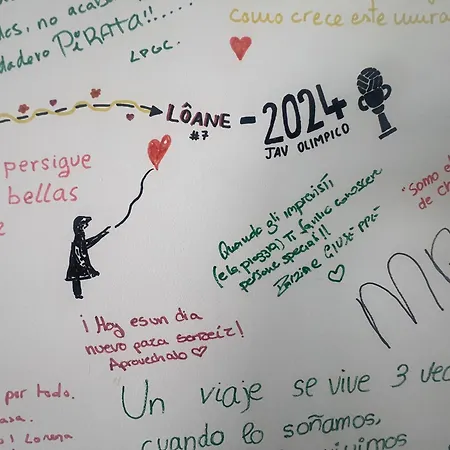 los, no acaba
dadero PiRATA!!....
LPGC.
como crece este mura
LÔANE - 2024
#7
JAV OLIMPICO
persigue
bellas
Quando gli imprevisti
(e la pioggia) Ti fanno conoscere
persone speciali!!
GIUSY
"Somo e
de ch
¡Hoy es un dia
nuevo para sonreir!
Aprovechalo ♡
por todo.
Lorena
Un viaje se vive 3 vec
cuando lo soñamos,
vivimos